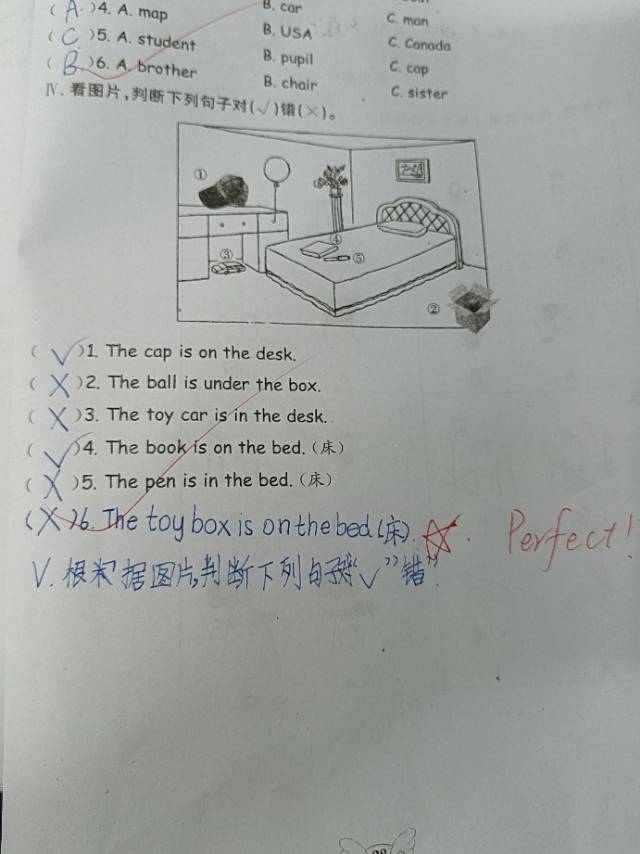 ( A )4. A. map B. car C. man
( C )5. A. student B. USA C. Canada
( B )6. A. brother B. pupil C. cap
B. chair C. sister
Ⅳ. 看图片,判断下列句子对(√)错(×)。
①
②
③
④
⑤
( √ )1. The cap is on the desk.
( X )2. The ball is under the box.
( X )3. The toy car is in the desk.
( √ )4. The book is on the bed. (床)
( X )5. The pen is in the bed. (床)
( X )6. The toy box is on the bed (床).
Perfect!
Ⅴ. 根据图片,判断下列句子对“√”错“